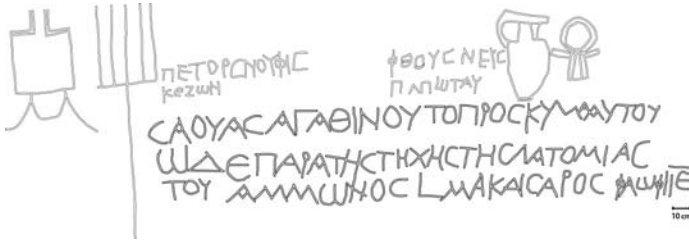 ΠΕΤΟΡCΝΟΥΦΙC
ΚΕΖΩΝ
ΦΘΟΥCΝΕΥC
ΠΑΠΩΤΑΥ
CΑΟΥΑCΑΓΑΘΙΝΟΥΤΟΠΡΟCΚΥΜΘΑΥΤΟΥ
ΩΔΕΠΑΡΑΤΗCΤΗΧΗCΤΗCΛΑΤΟΜΙΑC
ΤΟΥ ΑΜΜΩΝΟC LΜΑΚΑΙCΑΡΟC ΦΑΩΦΙΙΕ
10 cm